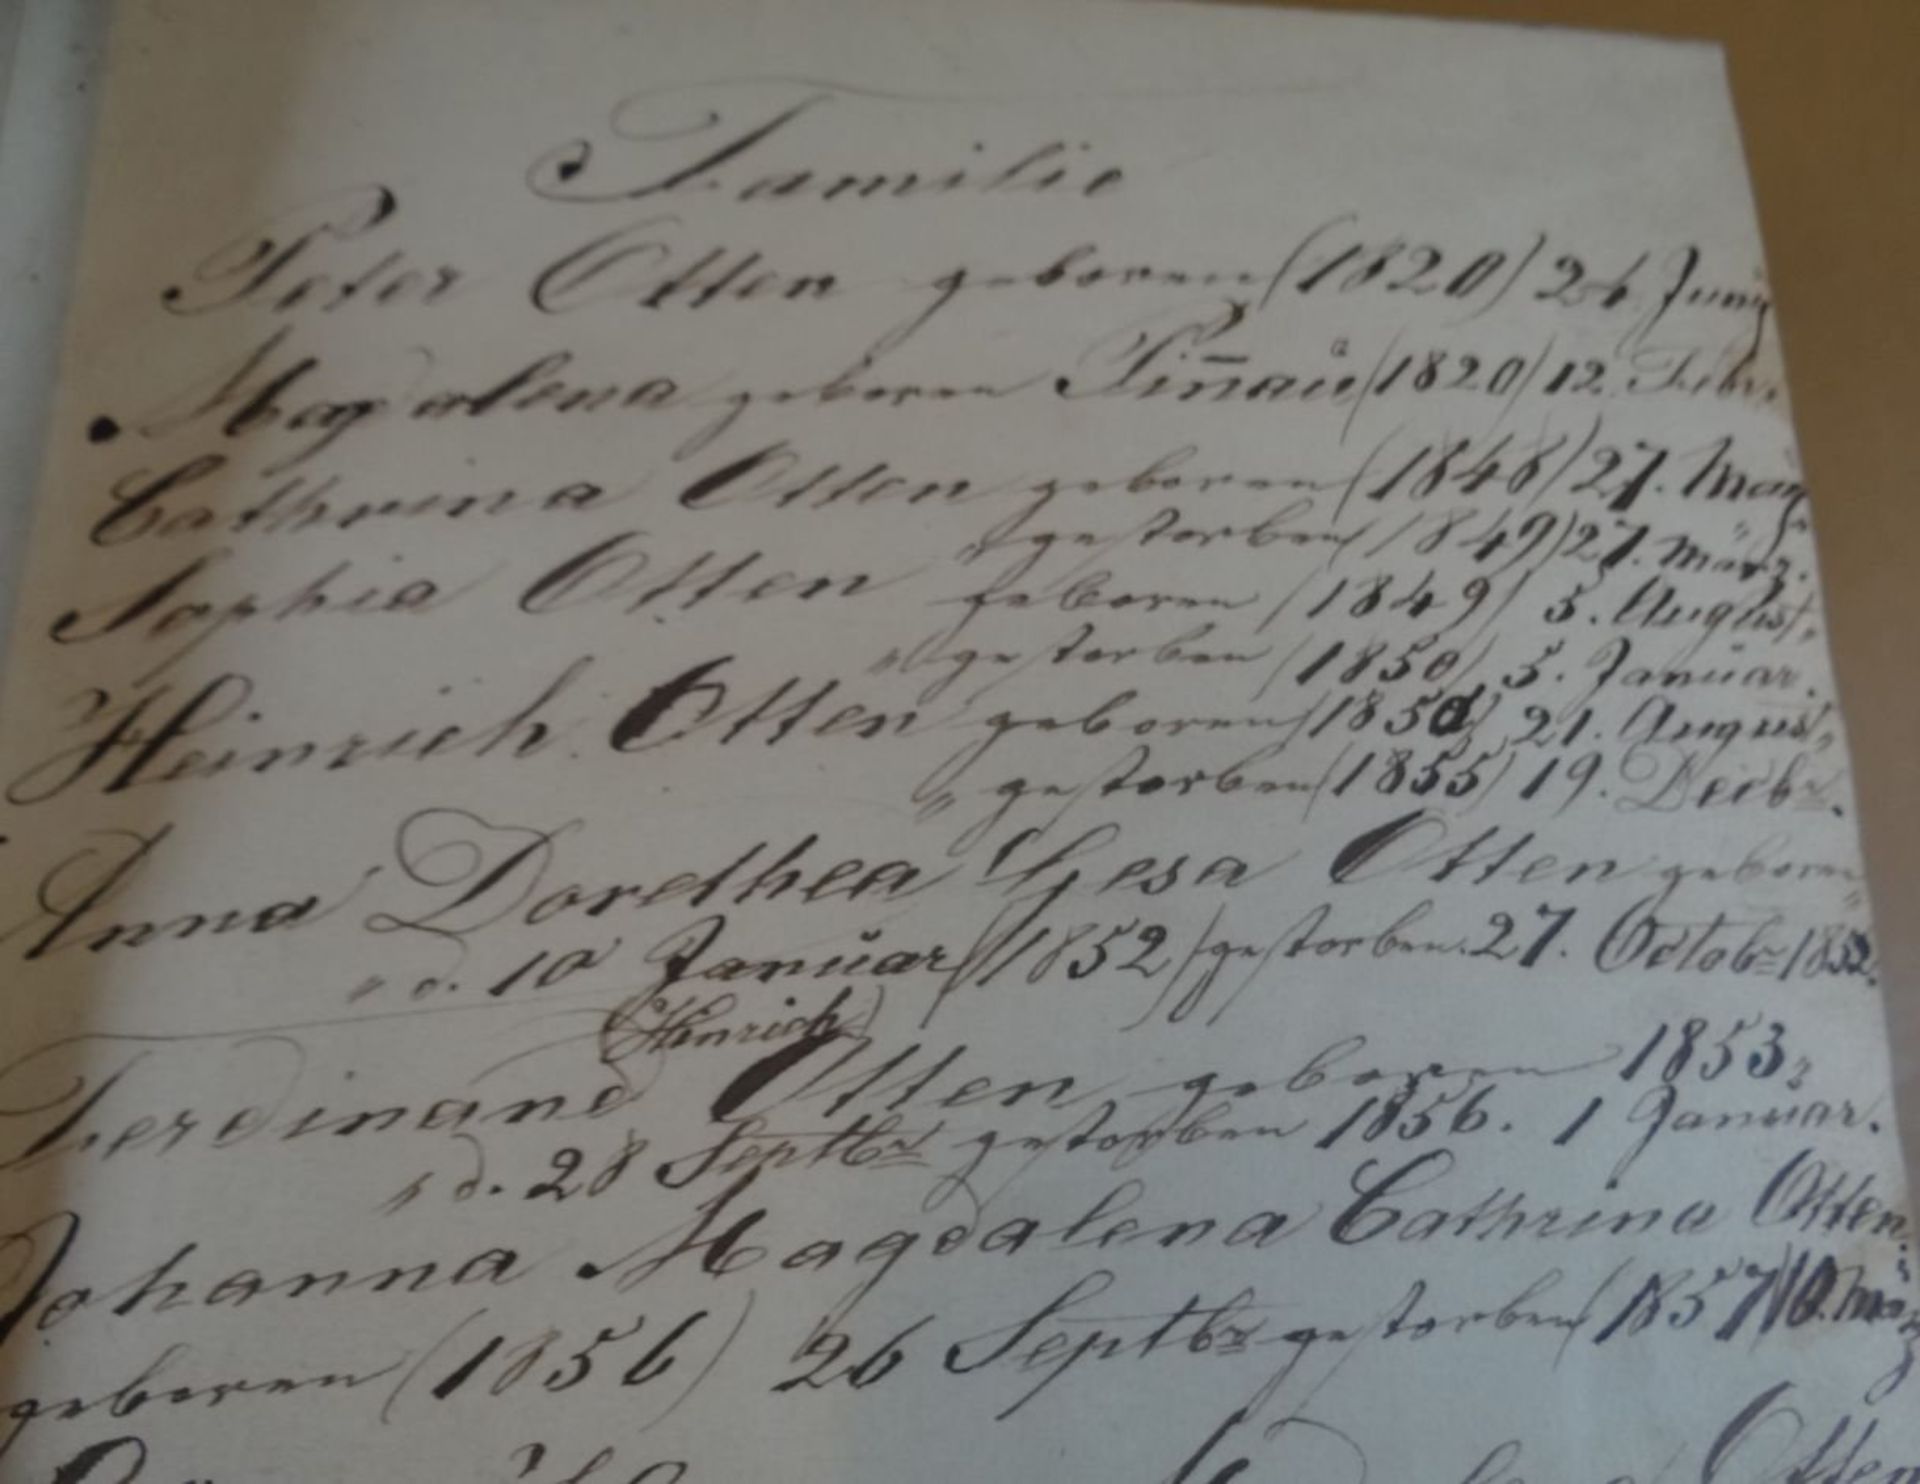 Familie
Peter Otten geboren (1820) 26 Juny
Magdalena geboren Piñau (1820) 12. Febr.
Cathrina Otten geboren (1848) 27. May
" gestorben (1849) 27. März.
Sophia Otten geboren (1849) 5. August.
" gestorben (1850) 5. Januar.
Heinrich Otten geboren (1850) 21. August.
" gestorben (1855) 19. Decbr.
Anna Dorethea Gesa Otten geboren
" d. 10 Januar (1852) gestorben. 27. Octobr 1852.
(Hinrich)
Ferdinand Otten geboren 1853.
" d. 28 Septbr gestorben 1856. 1 Januar.
Johanna Magdalena Cathrina Otten.
geboren (1856) 26 Septbr gestorben (1857) 10. März
Otten